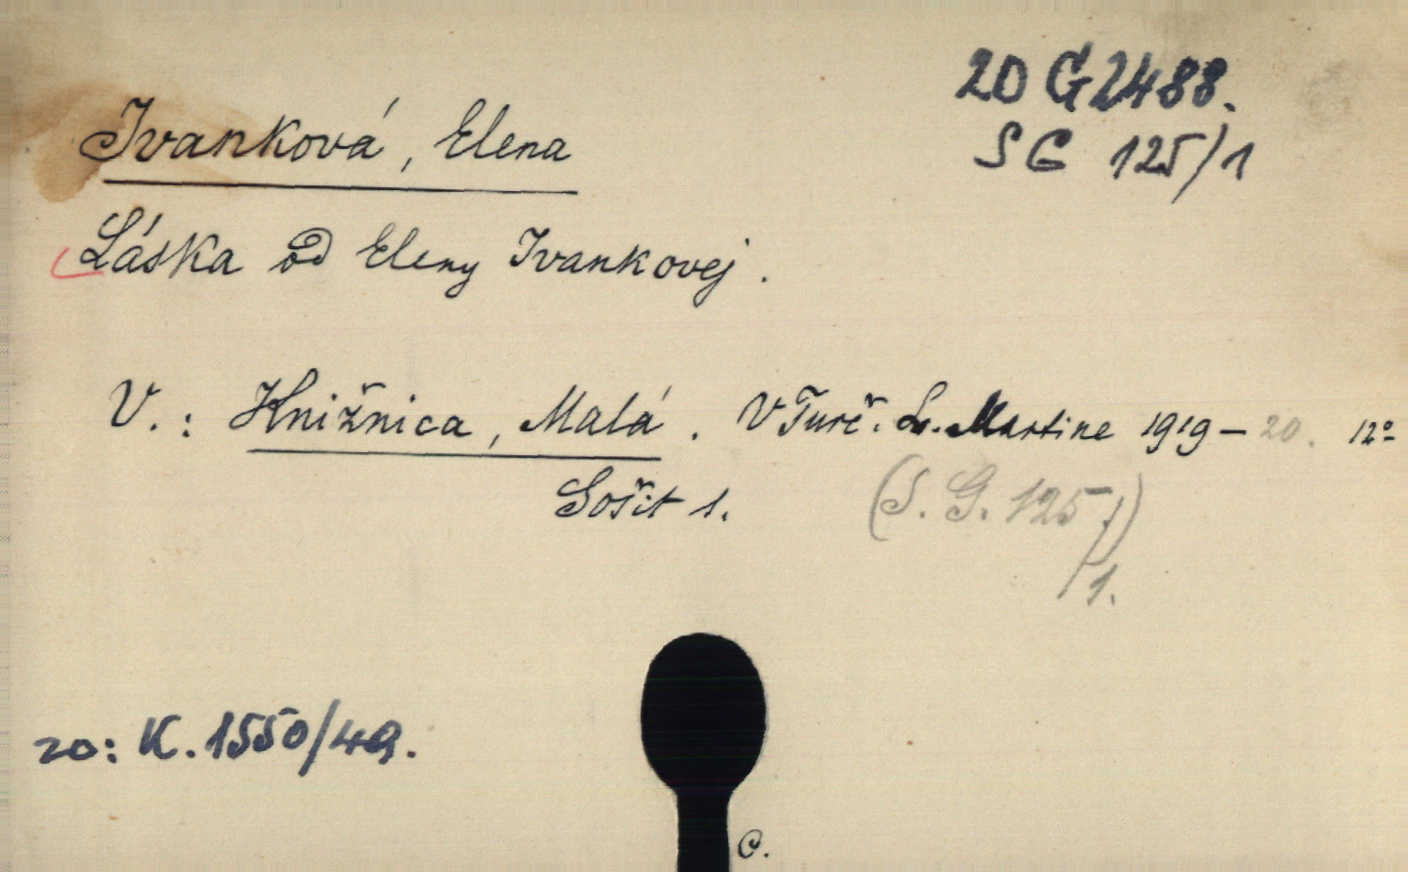 20 G 2488.
SG 125/1
Ivanková, Elena
Láska od Eleny Ivankovej.
V.: Knižnica, Malá. V Turč. Sv. Martine 1919–20. 12°
Sošit 1.
(S. G. 125)/1.
20: K. 1550/49.
C.